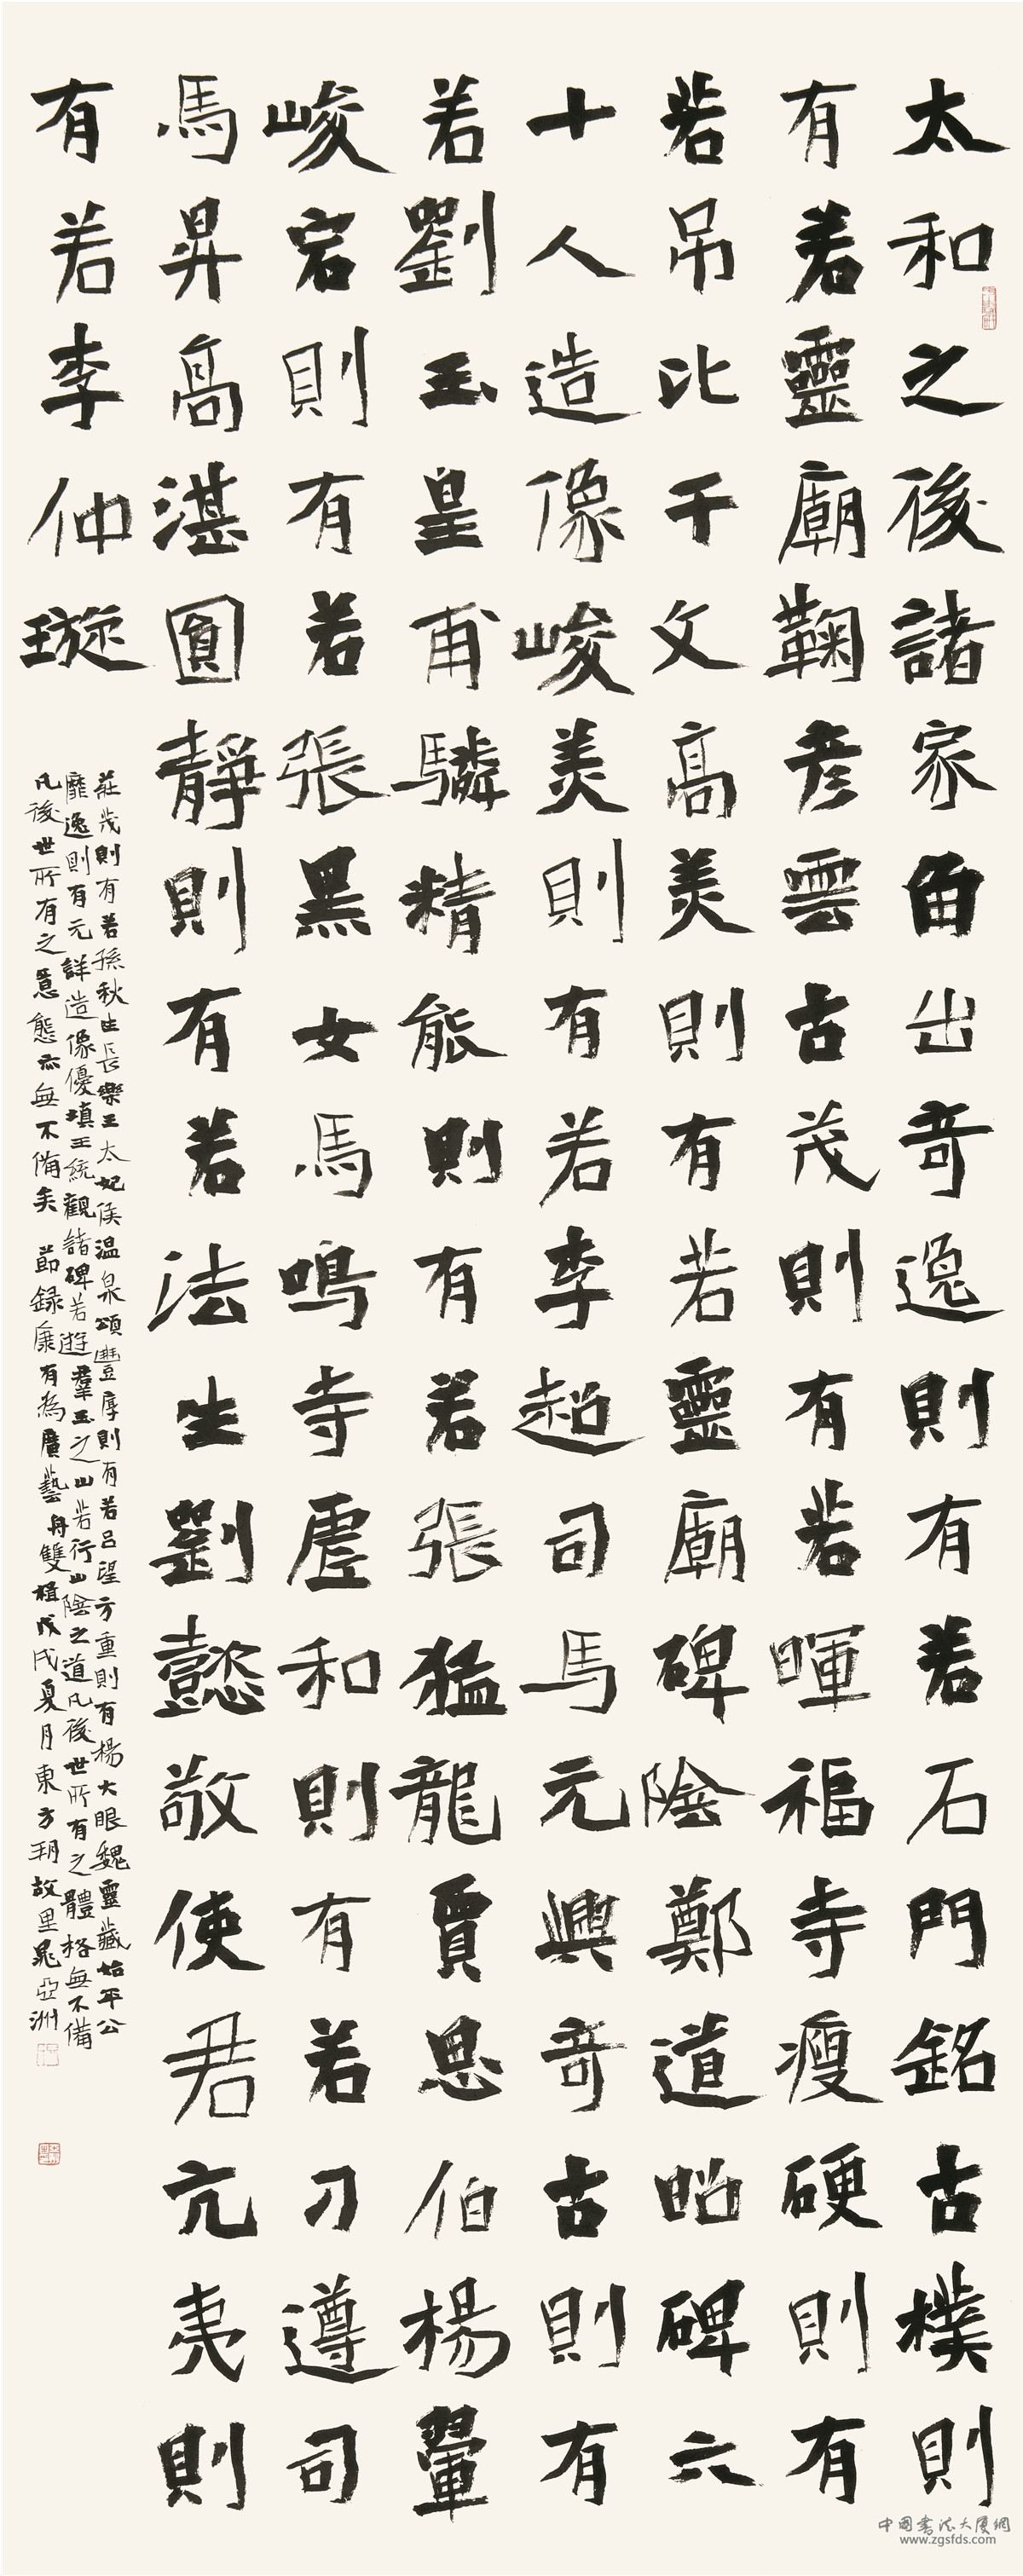 太和之後諸家角出奇逸則有若石門銘古樸則
有若靈廟鞠彥雲古茂則有若暉福寺瘦硬則有
若吊比干文高美則有若靈廟碑陰鄭道昭碑六
十人造像峻美則有若李超司馬元興奇古則有
若劉玉皇甫驎精能則有若張猛龍賈思伯楊翬
峻宕則有若張黑女馬鳴寺虛和則有若刁遵司
馬昇高湛圓靜則有若法生劉懿敬使君亢夷則
有若李仲璇
莊茂則有若孫秋生長樂王太妃侯温泉頌豐厚則有若吕望方重則有楊大眼魏靈藏始平公
靡逸則有元詳造像優填王統觀諸碑若遊羣玉之山若行山陰之道凡後世所有之體格無不備
凡後世所有之意態亦無不備矣 節録康有為廣藝舟雙楫戊戌夏月東方朔故里晁亞洲
中國書法大厦網
www.zgsfds.com